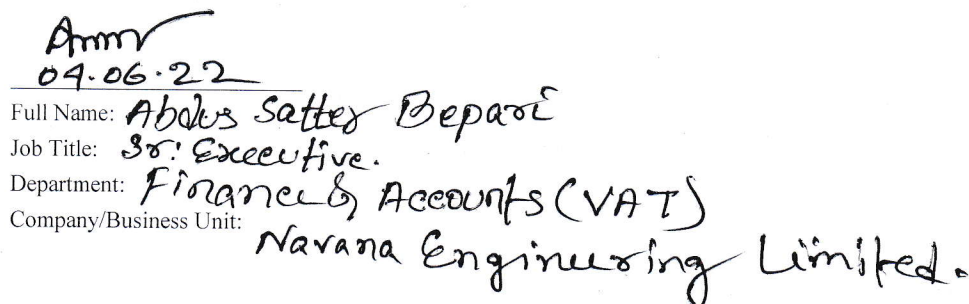 04.06.22
Full Name: Abdus Satter Bepari
Job Title: Sr. Executive.
Department: Finance & Accounts (VAT)
Company/Business Unit: Navana Engineering Limited.